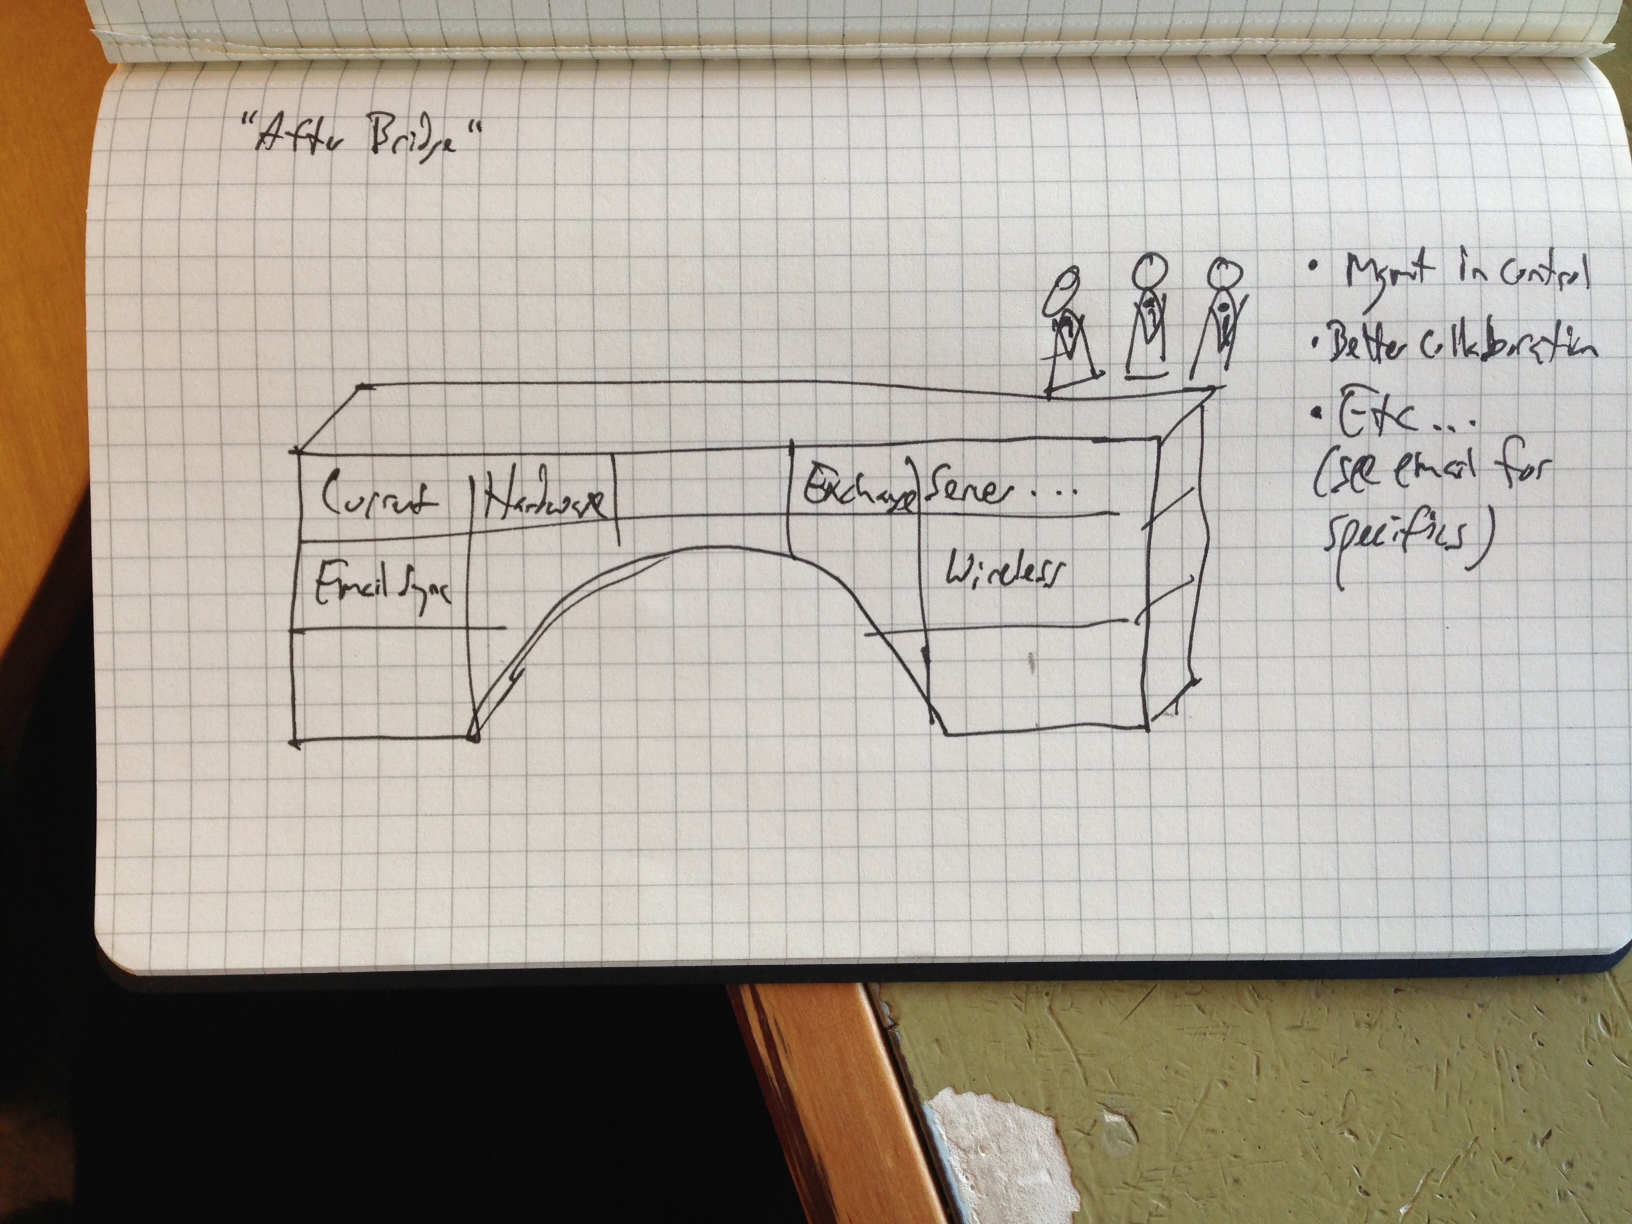 "After Bridge"
Current Hardware
Exchange Server...
Email Sync
Wireless
• Mgmt in control
• Better Collaboration
• Etc...
(see email for
specifics)